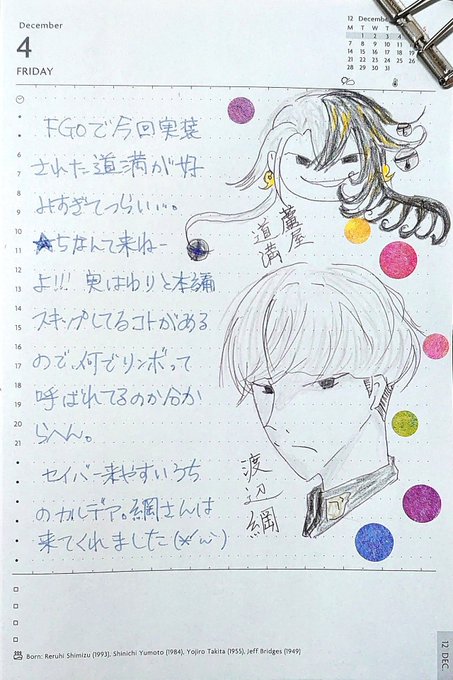 December
4
FRIDAY
12 December
M T W T F S S
1 2 3 4 5 6
7 8 9 10 11 12 13
14 15 16
21 22 23
28 29 30 31
FGOで今回実装
された道満が好
みすぎてつらい…。
★ちなんて来ねー
よ!!! 実はわりと本編
スキップしてるコトがある
ので、何でリンボって
呼ばれてるのか分か
らへん。
セイバー来やすいうち
のカルデア。綱さんは
来てくれました
蘆屋
道満
渡辺綱
6
7
8
9
10
11
12
13
14
15
16
17
18
19
20
21
Born: Reruhi Shimizu (1993), Shinichi Yumoto (1984), Yojiro Takita (1955), Jeff Bridges (1949)
12 DEC.